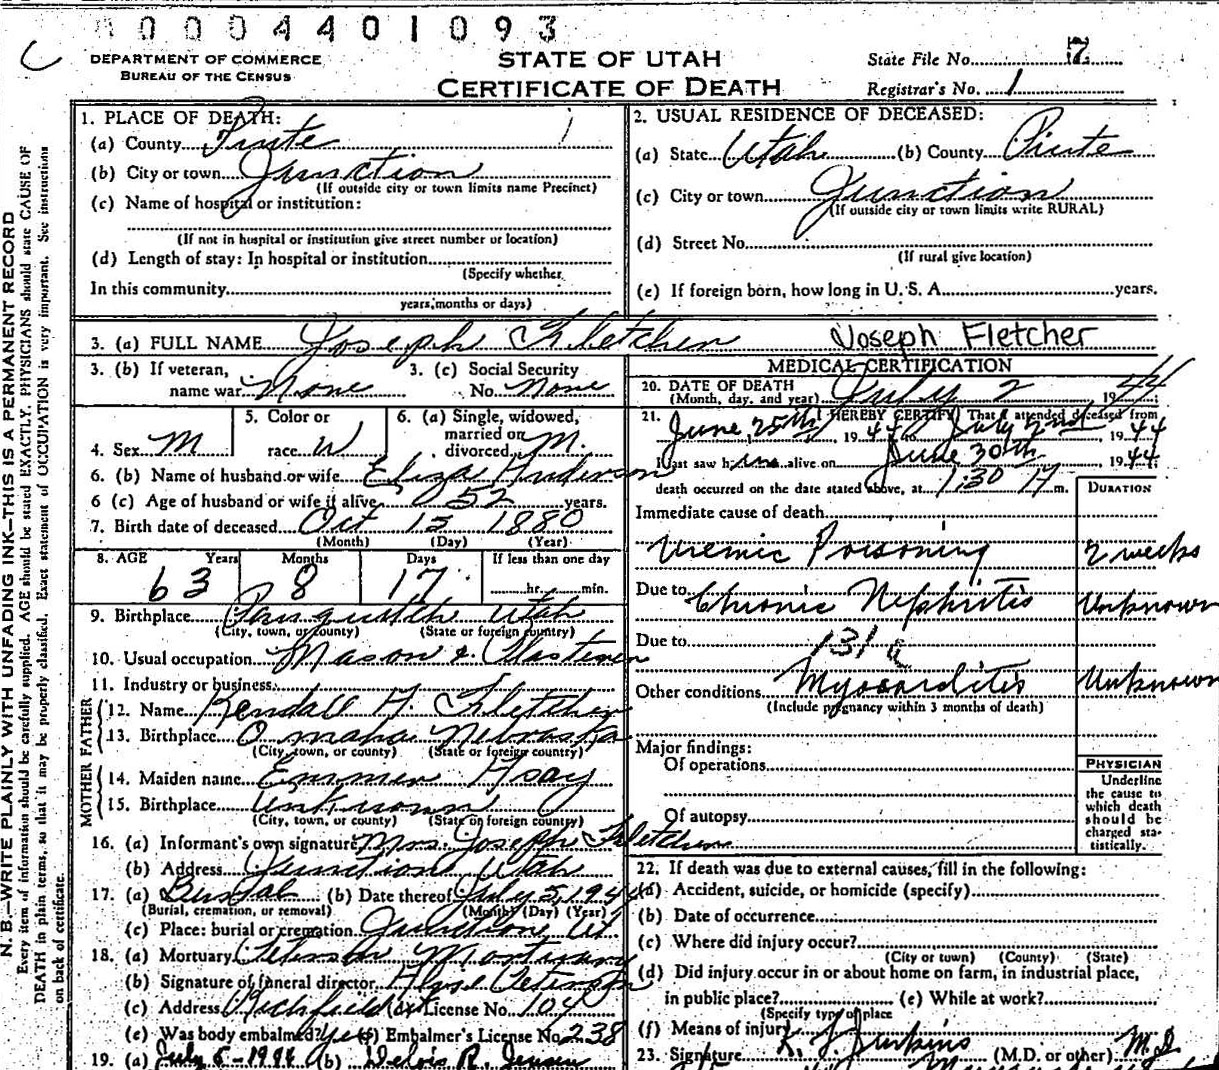 0004401093
DEPARTMENT OF COMMERCE
BUREAU OF THE CENSUS
STATE OF UTAH
CERTIFICATE OF DEATH
State File No. 7
Registrar's No. 1
N. B.—WRITE PLAINLY WITH UNFADING INK—THIS IS A PERMANENT RECORD
Every item of information should be carefully supplied. AGE should be stated EXACTLY. PHYSICIANS should state CAUSE OF
DEATH in plain terms, so that it may be properly classified. Exact statement of OCCUPATION is very important. See instructions
on back of certificate.
1. PLACE OF DEATH:
(a) County Piute
(b) City or town Junction
(If outside city or town limits name Precinct)
(c) Name of hospital or institution:
(If not in hospital or institution give street number or location)
(d) Length of stay: In hospital or institution
(Specify whether
In this community
years, months or days)
2. USUAL RESIDENCE OF DECEASED:
(a) State Utah (b) County Piute
(c) City or town Junction
(If outside city or town limits write RURAL)
(d) Street No.
(If rural give location)
(e) If foreign born, how long in U. S. A. years.
3. (a) FULL NAME Joseph Fletcher Joseph Fletcher
3. (b) If veteran,
name war None
3. (c) Social Security
No. None
4. Sex M
5. Color or
race W
6. (a) Single, widowed,
married or
divorced M.
6. (b) Name of husband or wife Eliza Anderson
6 (c) Age of husband or wife if alive 52 years.
7. Birth date of deceased Oct 15 1880
(Month) (Day) (Year)
8. AGE Years Months Days If less than one day
63 8 17 hr. min.
9. Birthplace Panguitch Utah
(City, town, or county) (State or foreign country)
10. Usual occupation Mason & Plasterer
11. Industry or business
FATHER
12. Name Kendall H. Fletcher
13. Birthplace Omaha Nebraska
(City, town, or county) (State or foreign country)
MOTHER
14. Maiden name Emmer Asay
15. Birthplace Unknown
(City, town, or county) (State or foreign country)
16. (a) Informant's own signature Mrs. Joseph Fletcher
(b) Address Junction Utah
17. (a) Burial (b) Date thereof July 5, 1944
(Burial, cremation, or removal) (Month) (Day) (Year)
(c) Place: burial or cremation Junction Ut
18. (a) Mortuary Mortuary
(b) Signature of funeral director
(c) Address Richfield Ut License No. 104
(e) Was body embalmed? Yes (f) Embalmer's License No. 238
19. (a) July 5-1944 (b) Delois R. Jensen
MEDICAL CERTIFICATION
20. DATE OF DEATH
(Month, day, and year) July 2 1944
21. I HEREBY CERTIFY That I attended deceased from
June 25th, 1944 to July 2nd, 1944
I last saw him alive on June 30th, 1944
death occurred on the date stated above, at 1:30 m.
DURATION
Immediate cause of death
Uremic Poisoning 2 weeks
Due to Chronic Nephritis Unknown
Due to 131 a
Other conditions Myocarditis Unknown
(Include pregnancy within 3 months of death)
Major findings:
Of operations
Of autopsy
PHYSICIAN
Underline
the cause to
which death
should be
charged sta-
tistically.
22. If death was due to external causes, fill in the following:
(a) Accident, suicide, or homicide (specify)
(b) Date of occurrence
(c) Where did injury occur?
(City or town) (County) (State)
(d) Did injury occur in or about home on farm, in industrial place,
in public place? (e) While at work?
(Specify type of place
(f) Means of injury
23. Signature Jenkins (M.D. or other) M.D.